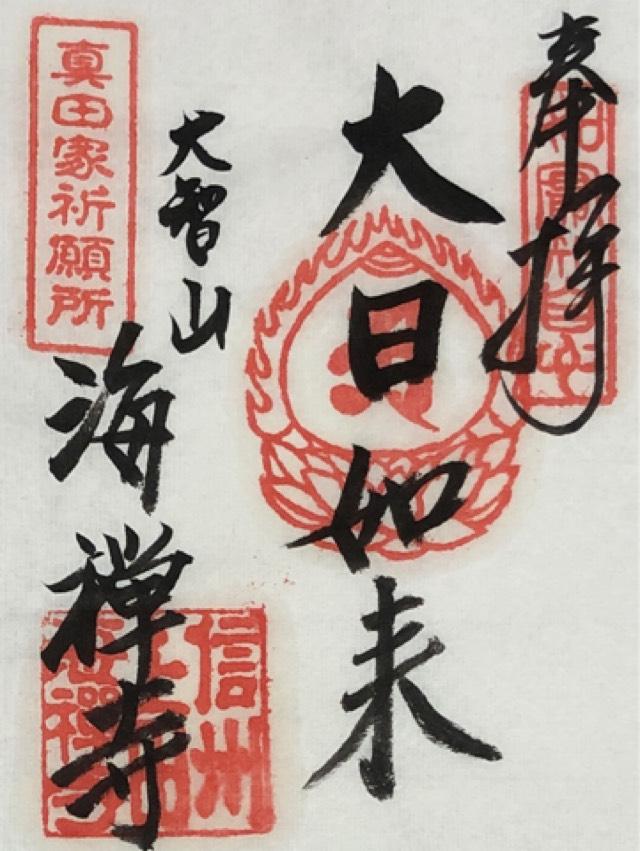 奉拝
大日如来
大智山
海禅寺
真田家祈願所
信州